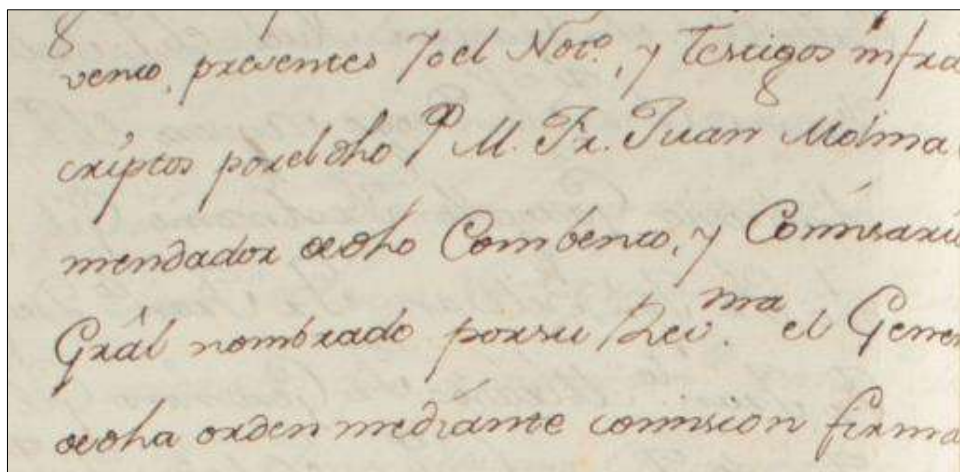 vento, presentes Yo el Noto., y Testigos infra
criptos por el dho P. M. Fr. Juan Molina
mendador de dho Combento, y Comisario
Gràl nombrado por su Rev.ma el Gener
de dha orden mediante comision firma